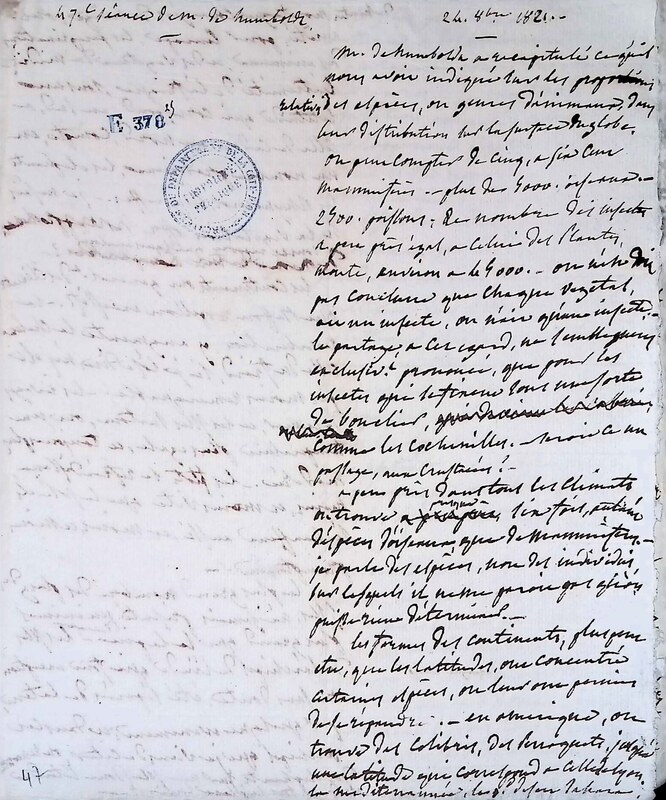 47.e séance de m. de humboldt
24. 8bre 1821.
m. de humboldt a récapitulé ce qu'il
nous avoit indiqué sur les proportions
relatives des espèces, ou genres d'animaux, dans
leur distribution sur la surface du globe.
on peut compter de cinq, a six cent
mammifères - plus de 4000. oiseaux. -
2400. poissons; le nombre des insectes
a peu près égal, a celui des plantes,
monte, environ a 44000. - on ne doit
pas conclure que chaque végétal,
ait un insecte, ou n'ait qu'un insecte. -
le partage, a cet égard, ne semble guères
exclusivt. prononcé, que pour les
insectes qui se tiennent sous une sorte
de bouclier,
comme les cochenilles. - seroit ce un
passage, aux crustacées?
a peu près dans tous les climats
on trouve six fois, autant
d'espèces d'oiseaux que de mammifères. -
je parle des espèces, non des individus,
sur lesquels il ne me paroit pas qu'on
puisse rien déterminer. -
les formes des continents, plus peut
etre, que les latitudes, ont concentré
certaines espèces, ou leur ont permis
de se répandre. - en amérique, on
trouve des colibris, des perroquets, jusqu'à
une latitude qui correspond a celle de lyon.
la méditerrannée, le désert de sahara,
E 378
47